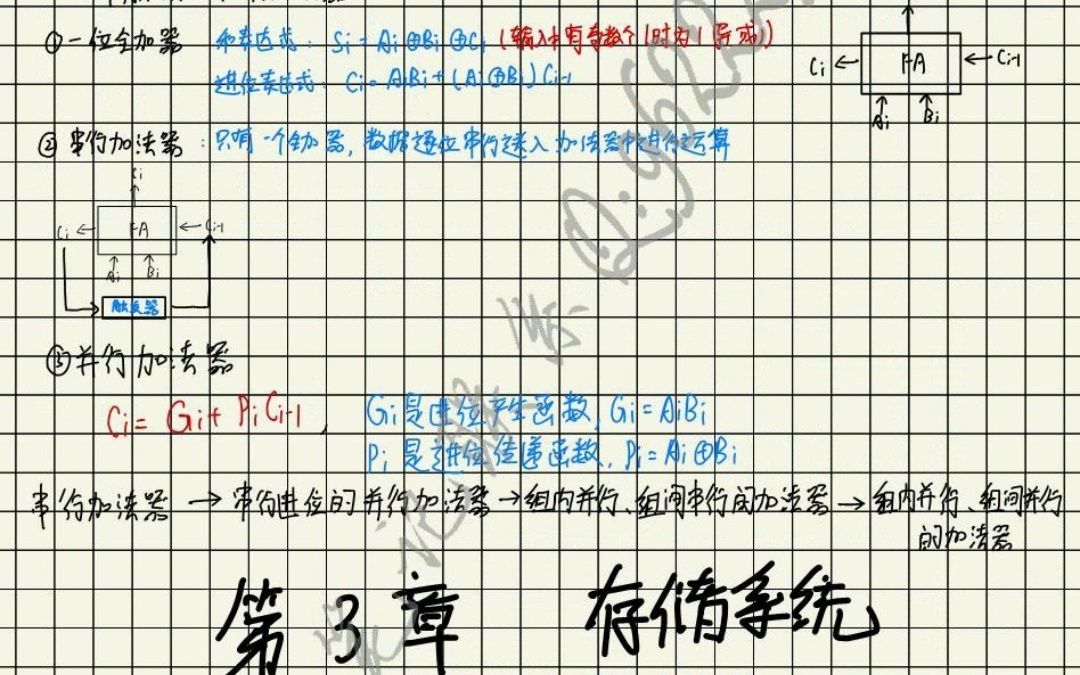 ①一位全加器 和表达式：Si = Ai⊕Bi⊕Ci (输入中有奇数个1时为1 异或)
进位表达式：Ci = AiBi + (Ai⊕Bi) Ci-1
Ci FA Ci-1
Ai Bi
②串行加法器：只有一个全加器，数据逐位串行送入加法器中进行运算
Si
Ci FA Ci-1
Ai Bi
触发器
③并行加法器
Ci = Gi + PiCi-1， Gi是进位产生函数，Gi = AiBi
Pi是进位传递函数，Pi = Ai⊕Bi
串行加法器 → 串行进位的并行加法器 → 组内并行、组间串行的加法器 → 组内并行、组间并行
的加法器
第3章 存储系统